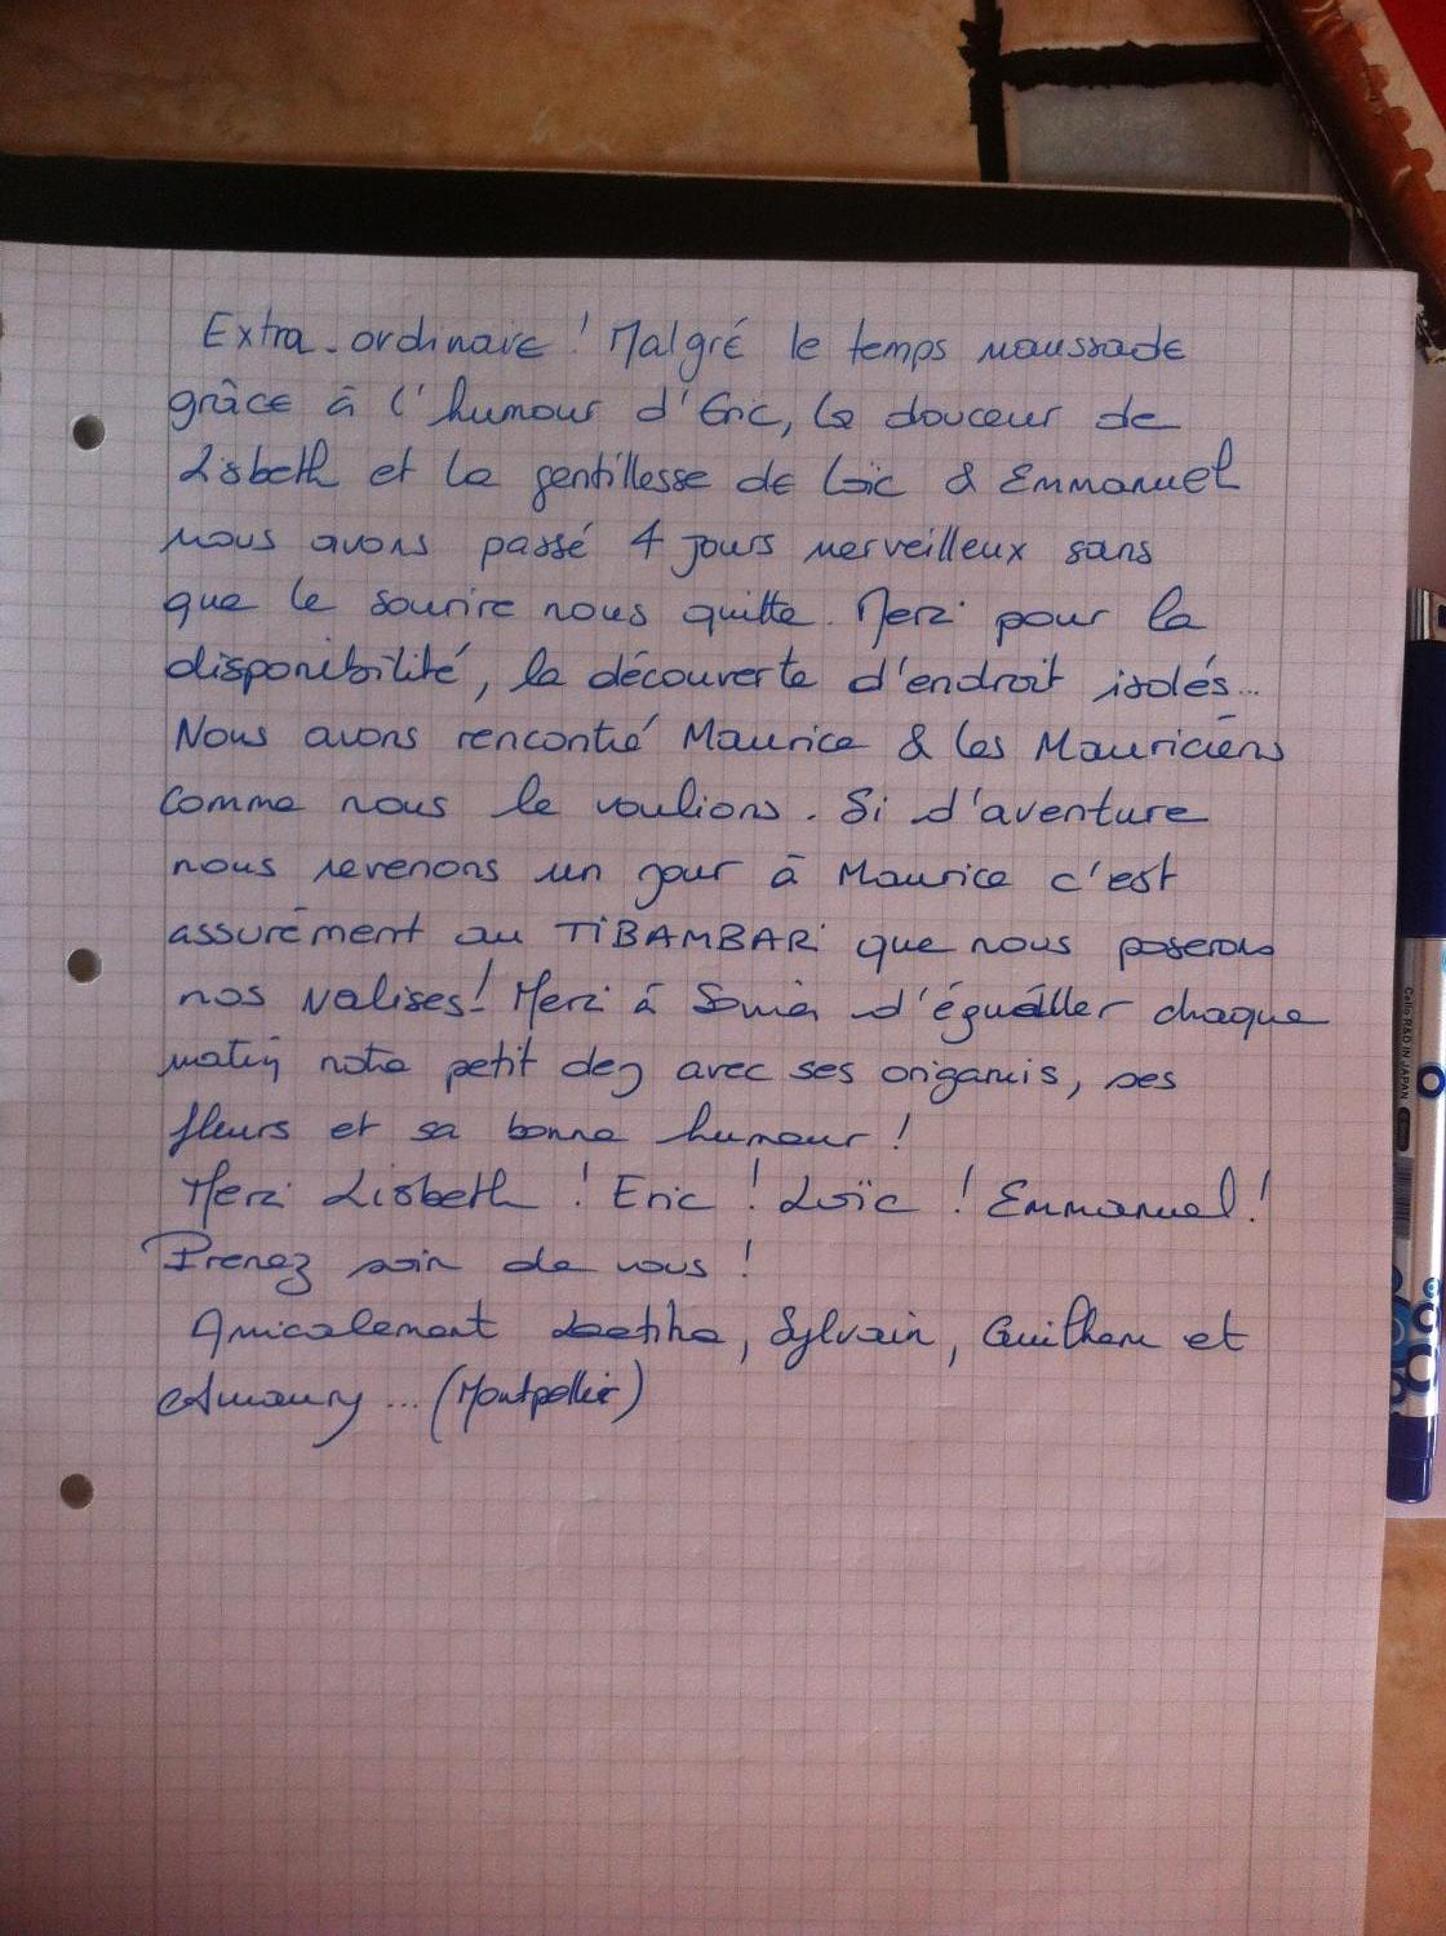 Extra-ordinaire ! Malgré le temps maussade
grâce à l'humour d'Eric, la douceur de
Lisbeth et la gentillesse de Loïc & Emmanuel
nous avons passé 4 jours merveilleux sans
que le sourire nous quitte. Merci pour la
disponibilité, la découverte d'endroit isolés...
Nous avons rencontré Maurice & les Mauriciens
comme nous le voulions. Si d'aventure
nous revenons un jour à Maurice c'est
assurément au TiBAMBARi que nous poserons
nos valises! Merci à Sonia d'éguailler chaque
matin notre petit dej avec ses origamis, ses
fleurs et sa bonne humeur !
Merci Lisbeth ! Eric ! Loïc ! Emmanuel !
Prenez soin de vous !
Amicalement Laetitia, Sylvain, Guilhem et
Amaury ... (Montpellier)
Cello R&D IN JAPAN